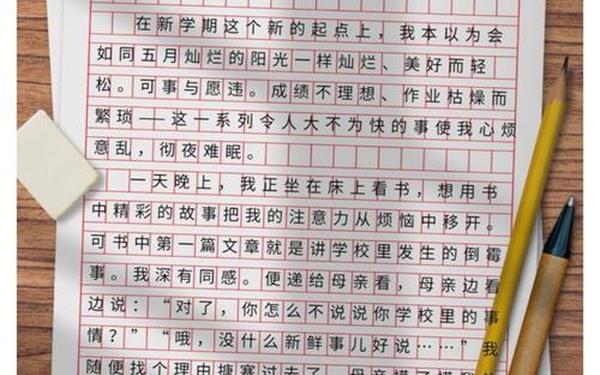 在新学期这个新的起点上，我本以为会
如同五月灿烂的阳光一样灿烂、美好而轻
松。可事与愿违。成绩不理想、作业枯燥而
繁琐——这一系列令人大不为快的事使我心烦
意乱，彻夜难眠。
一天晚上，我正坐在床上看书，想用书
中精彩的故事把我的注意力从烦恼中移开。
可书中第一篇文章就是讲学校里发生的倒霉
事。我深有同感。便递给母亲看，母亲边看
边说：“对了，你怎么不说说你学校里的事
情？”“哦，没什么新鲜事儿好说……”我
随便找个理由搪塞过去了，母亲摸了摸我